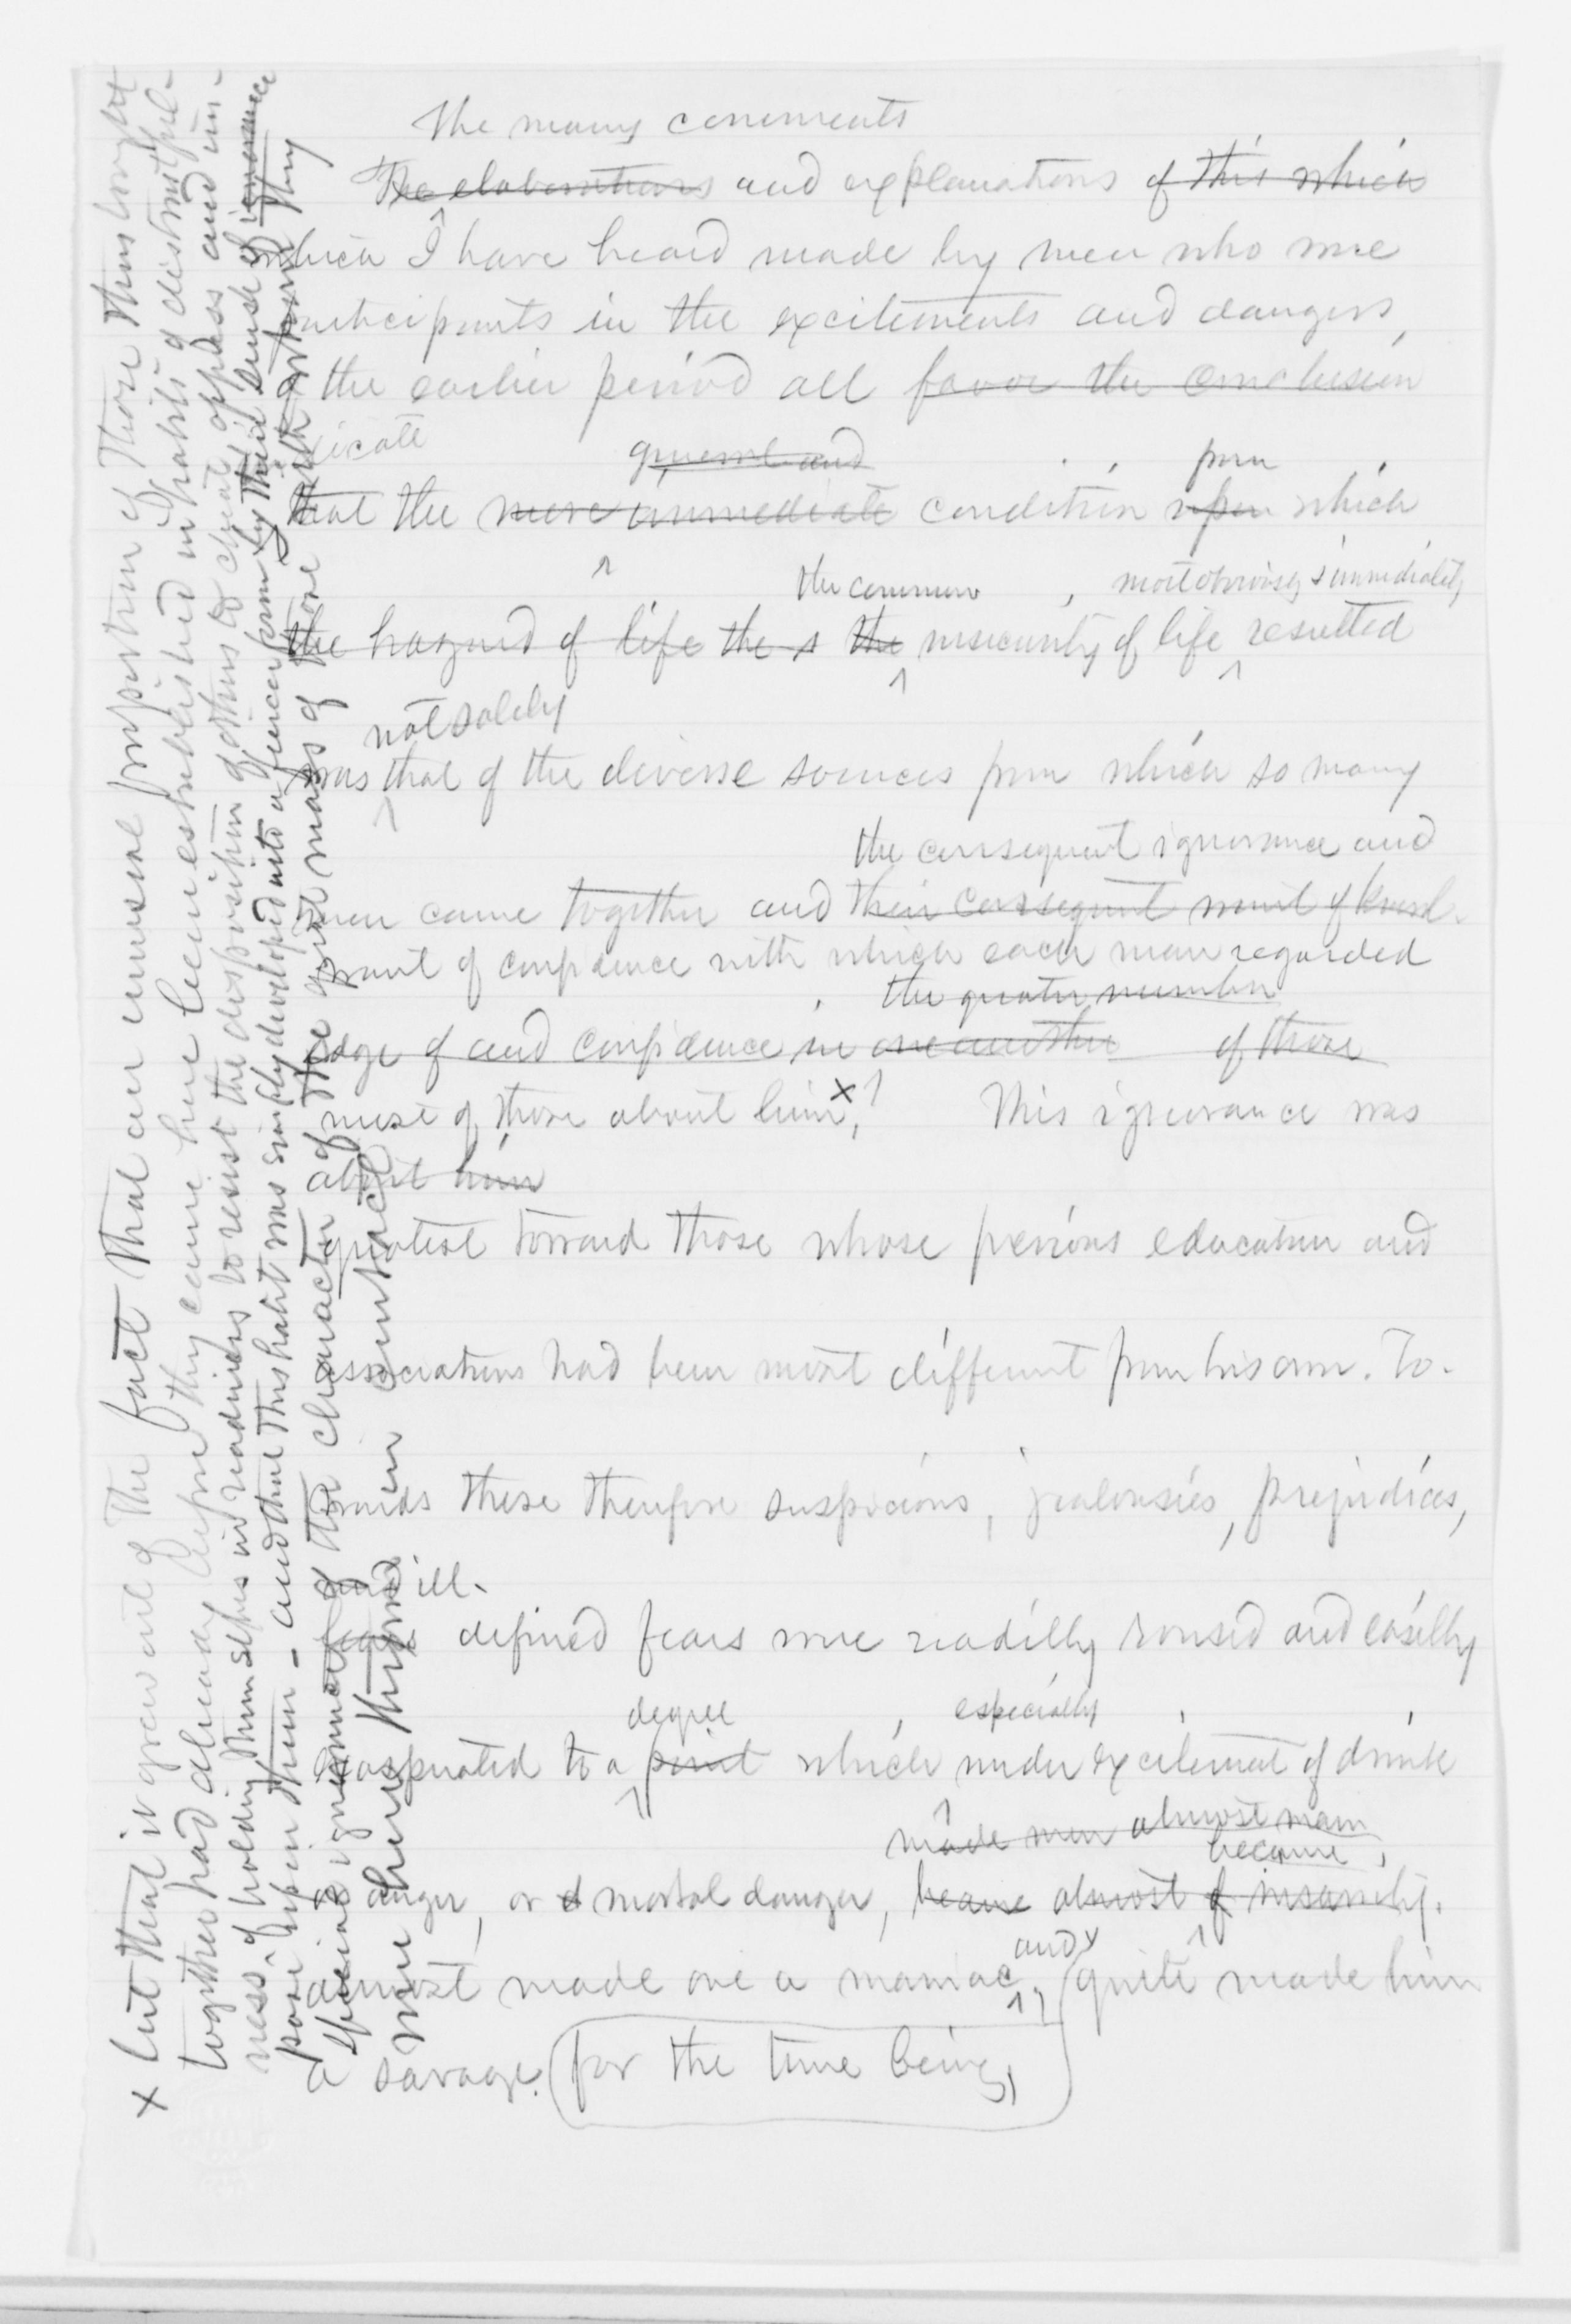 The many comments
The elaborations and explanations of this which
which I have heard made by men who were
participants in the excitements and dangers,
the earlier period all favor the conclusion
icate
general and
from
that the more immediate condition upon which
the common , most obviously & immediately
the hazard of life the s the insecurity of life resulted
not solely
was that of the diverse sources from which so many
the consequent ignorance and
men came together and their consequent want of knowl-
want of confidence with which each man regarded
the greater number
edge of and confidence in one another of those
most of those about him x, This ignorance was
about him
greatest toward those whose previous education and
associations had been most different from his own. To-
wards these therefore suspicions, jealousies, prejudices,
and ill-
fears defined fears were readilly roused and easilly
degree , especially
exasperated to a point which under excitement of drink
made men almost
became,
or anger, or of mortal danger, became almost of insanity.
and
almost made one a maniac, quite made him
a savage. (for the time being,)
x but that it grew out of the fact that an unusual proportion of those thus brought
together had already before they came here become established in habits of distrustful-
ness, of holding themselves in readiness to resist the disposition of others to cheat oppress and im-
pose upon them - and that this habit was simply developed into a fiercer form by their sense of ignorance
special ignorance of the character of the great mass of those with whom they
were here thrown in contact